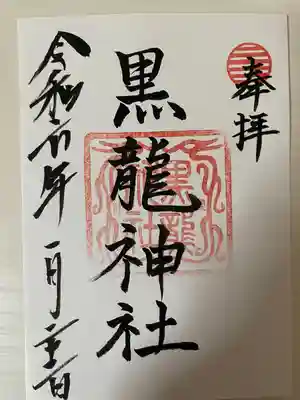 奉拝
黒龍神社
黒龍
神社
令和六年一月二十三日